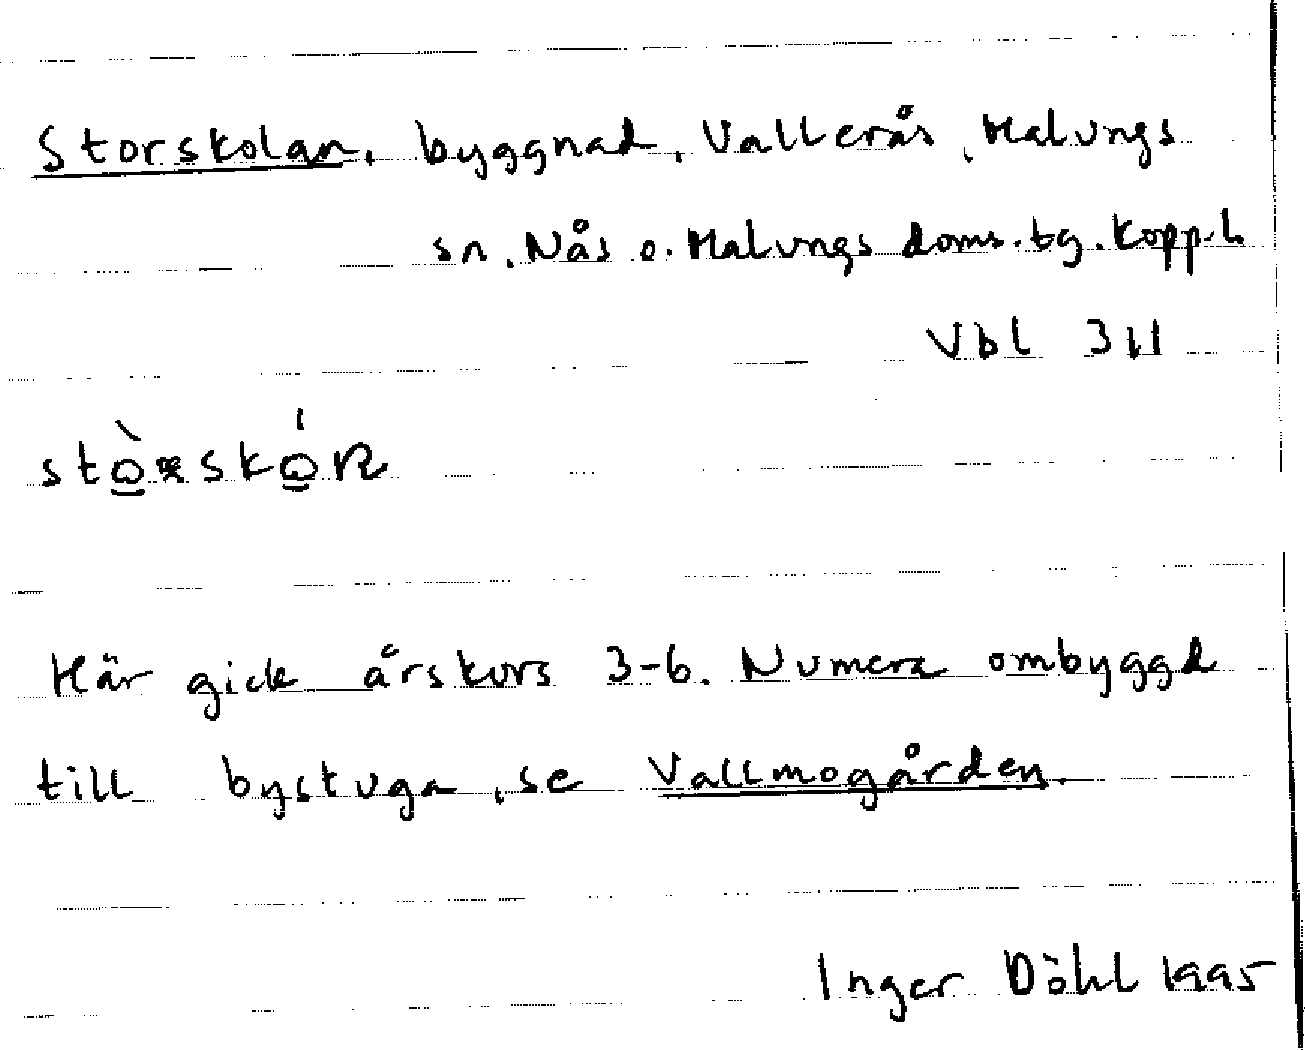 Storskolan, byggnad, Vallerås, Malungs
sn. Nås o. Malungs doms. tg. Kopp. l.
Vbl 311
Här gick årskurs 3-6. Numera ombyggd
till bystuga, se Vallmogården.
Inger Döhl 1995